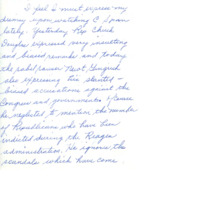 I feel I must express my
dismay upon watching C-Span
lately. Yesterday Rep Chuck
Douglas expressed very insulting
and biased remarks and today
the rabble rouser Newt Gingrich
also expressing his slanted -
biased accusations against the
Congress and government. Of course
he neglected to mention the number
of Republicans who have been
indicted during the Reagan
administration. He ignores the
scandals which have come